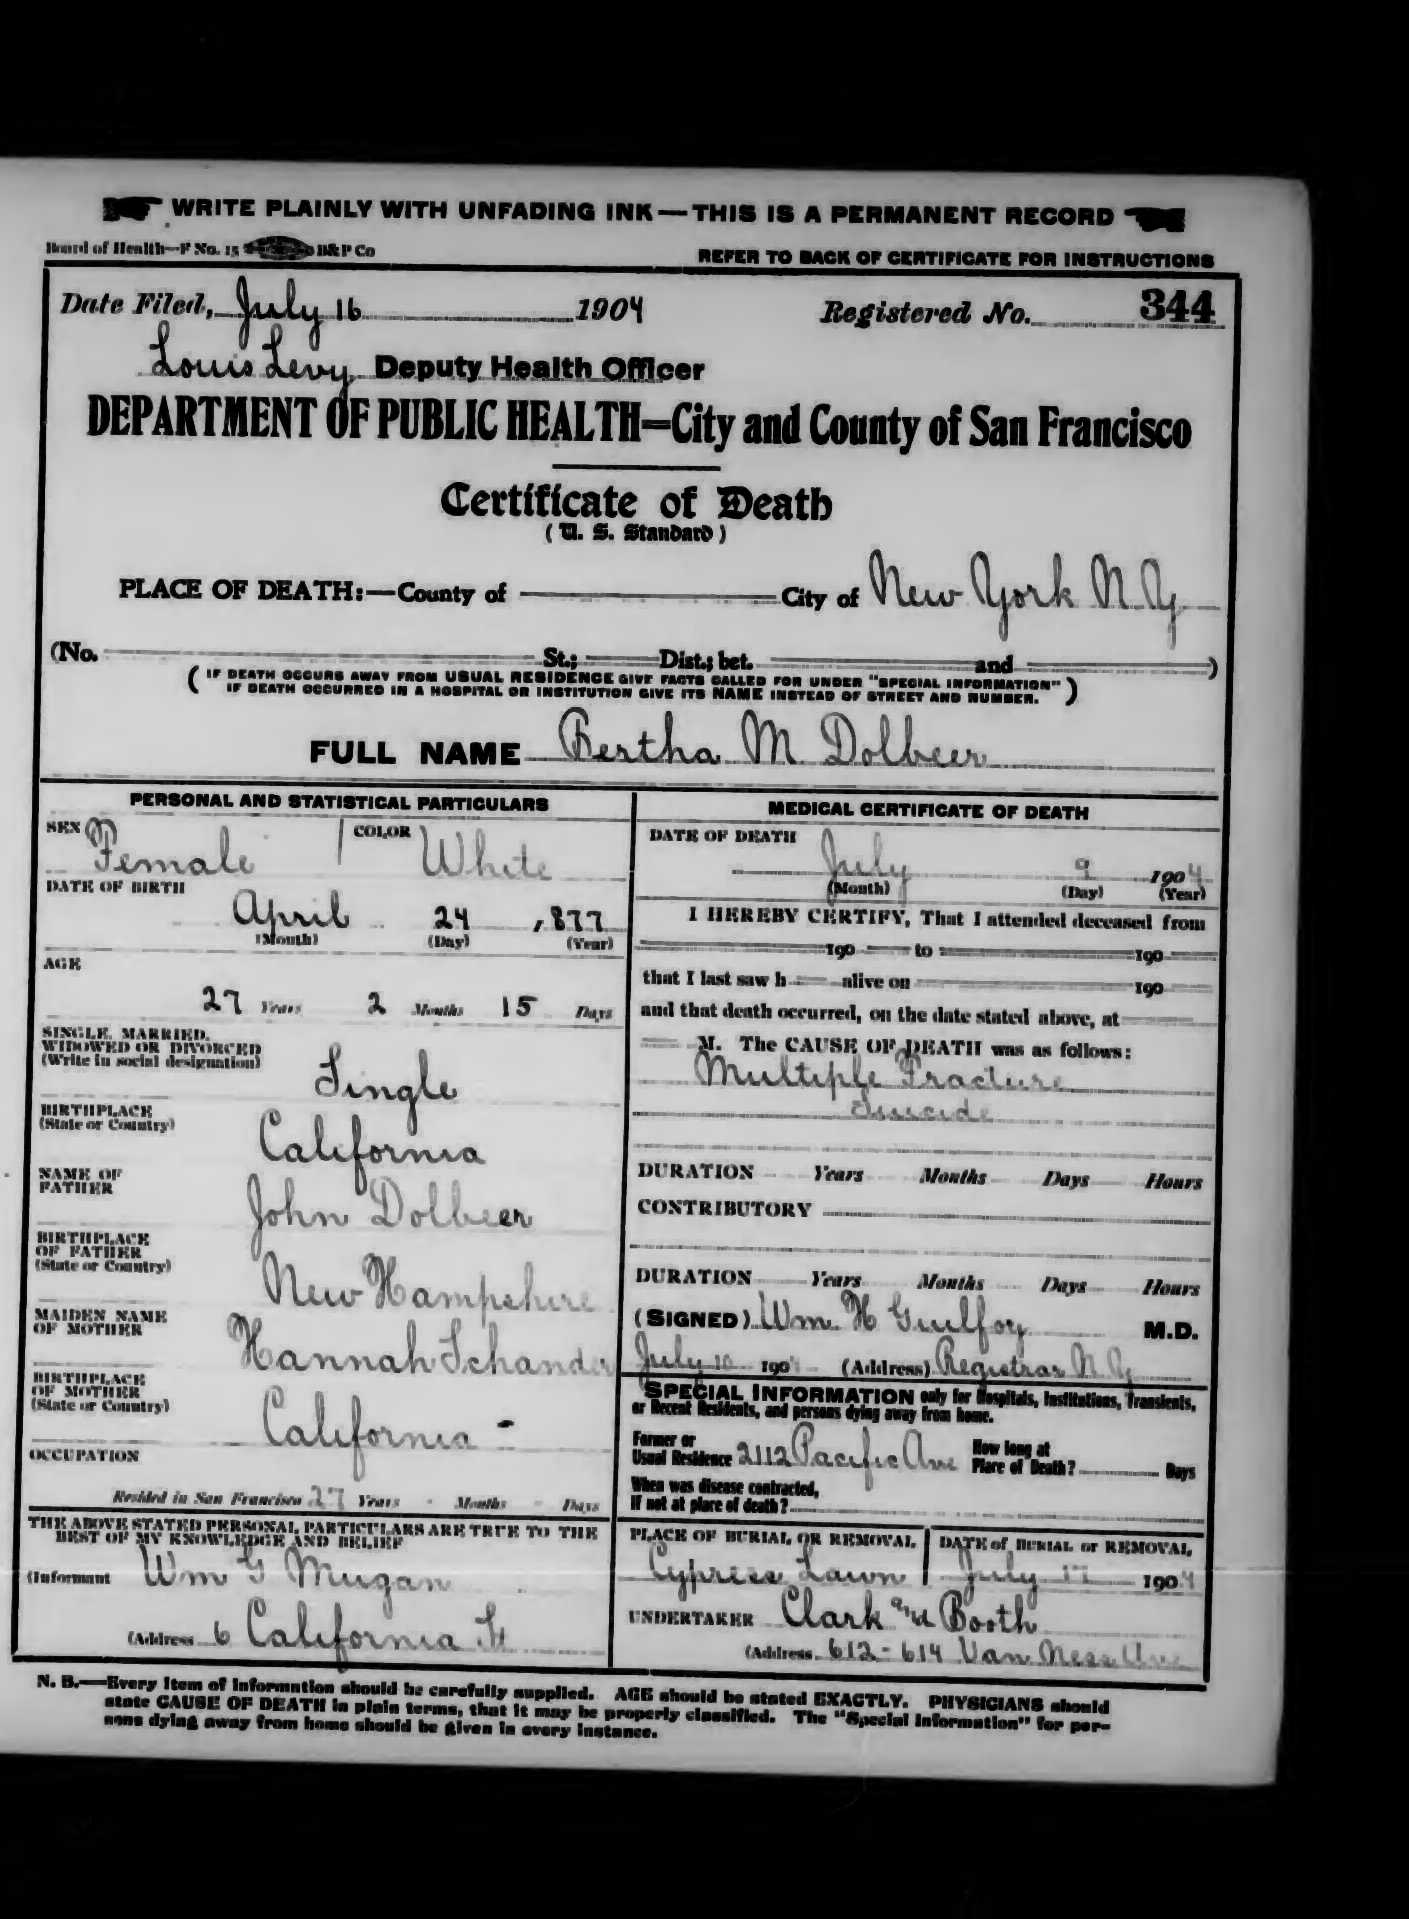 WRITE PLAINLY WITH UNFADING INK—THIS IS A PERMANENT RECORD
Board of Health—F No. 15 B&P Co
REFER TO BACK OF CERTIFICATE FOR INSTRUCTIONS
Date Filed, July 16 1904 Registered No. 344
Louis Levy Deputy Health Officer
DEPARTMENT OF PUBLIC HEALTH=City and County of San Francisco
Certificate of Death
(U. S. Standard)
PLACE OF DEATH:—County of City of New York N.Y.
(No. St.; Dist.; bet. and )
(IF DEATH OCCURS AWAY FROM USUAL RESIDENCE GIVE FACTS CALLED FOR UNDER "SPECIAL INFORMATION"
IF DEATH OCCURRED IN A HOSPITAL OR INSTITUTION GIVE ITS NAME INSTEAD OF STREET AND NUMBER.)
FULL NAME Bertha M Dolbeer
PERSONAL AND STATISTICAL PARTICULARS
SEX Female COLOR White
DATE OF BIRTH
April 24 , 877
(Month) (Day) (Year)
AGE
27 Years 2 Months 15 Days
SINGLE, MARRIED,
WIDOWED OR DIVORCED
(Write in social designation)
Single
BIRTHPLACE
(State or Country)
California
NAME OF
FATHER
John Dolbeer
BIRTHPLACE
OF FATHER
(State or Country)
New Hampshire
MAIDEN NAME
OF MOTHER
Hannah Schander
BIRTHPLACE
OF MOTHER
(State or Country)
California -
OCCUPATION
Resided in San Francisco 27 Years - Months - Days
THE ABOVE STATED PERSONAL PARTICULARS ARE TRUE TO THE
BEST OF MY KNOWLEDGE AND BELIEF
(Informant Wm G Mugan
(Address 6 California St
MEDICAL CERTIFICATE OF DEATH
DATE OF DEATH
July 9 1904
(Month) (Day) (Year)
I HEREBY CERTIFY, That I attended deceased from
190 to 190
that I last saw h alive on 190
and that death occurred, on the date stated above, at
M. The CAUSE OF DEATH was as follows:
Multiple Fracture
Suicide
DURATION Years Months Days Hours
CONTRIBUTORY
DURATION Years Months Days Hours
(SIGNED) Wm. H Guilfoy M.D.
July 10 1904 (Address) Registrar N.Y.
SPECIAL INFORMATION only for Hospitals, Institutions, Transients,
or Recent Residents, and persons dying away from home.
Former or
Usual Residence 2112 Pacific Ave
How long at
Place of Death? Days
When was disease contracted,
If not at place of death?
PLACE OF BURIAL OR REMOVAL
Cypress Lawn
DATE of BURIAL or REMOVAL
July 17 1904
UNDERTAKER Clark and Booth
(Address 612-614 Van Ness Ave
N. B.—Every item of information should be carefully supplied. AGE should be stated EXACTLY. PHYSICIANS should
state CAUSE OF DEATH in plain terms, that it may be properly classified. The "Special Information" for per-
sons dying away from home should be given in every instance.